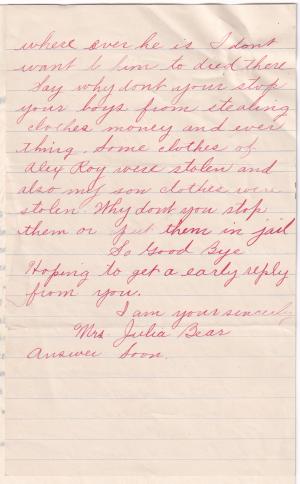 where ever he is I dont
want to him to died there
say why dont your stop
your boys from stealing
clothes money and ever
thing. Some clothes of
Alex Roy were stolen and
also my son clothes were
stolen Why dont you stop
them or put them in jail
So Good Bye
Hoping to get a early reply
from you.
I am your sincerly
Mrs Julia Bear
Answer Soon.